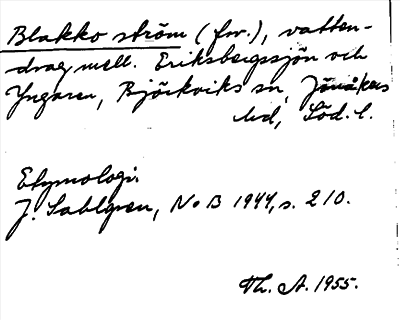 Blakko ström (fsv.), vatten-
drag mell. Eriksbergssjön och
Yngaren, Björkviks sn, Jönåkers
hd, Söd. l.
Etymologi.
J. Sahlgren, NoB 1944, s. 210.
Th. A. 1955.